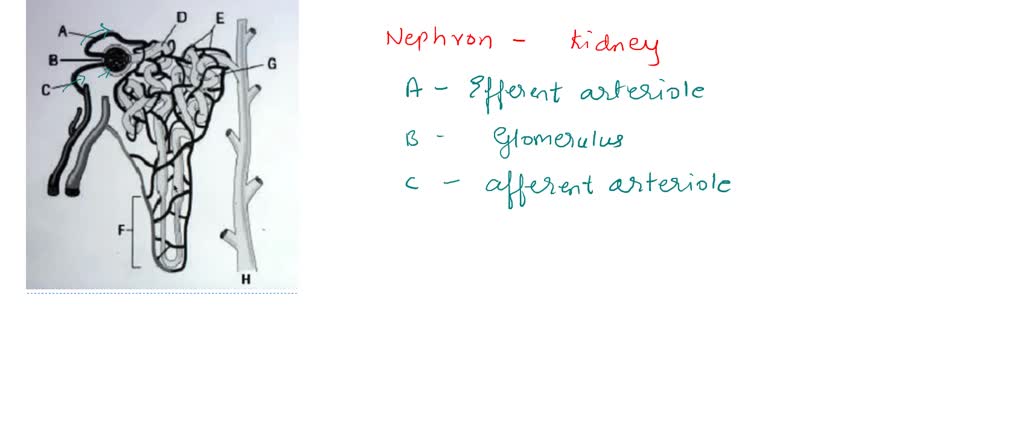 A
D
E
B
G
C
F
H
Nephron - kidney
A - Efferent arteriole
B - Glomerulus
C - afferent arteriole